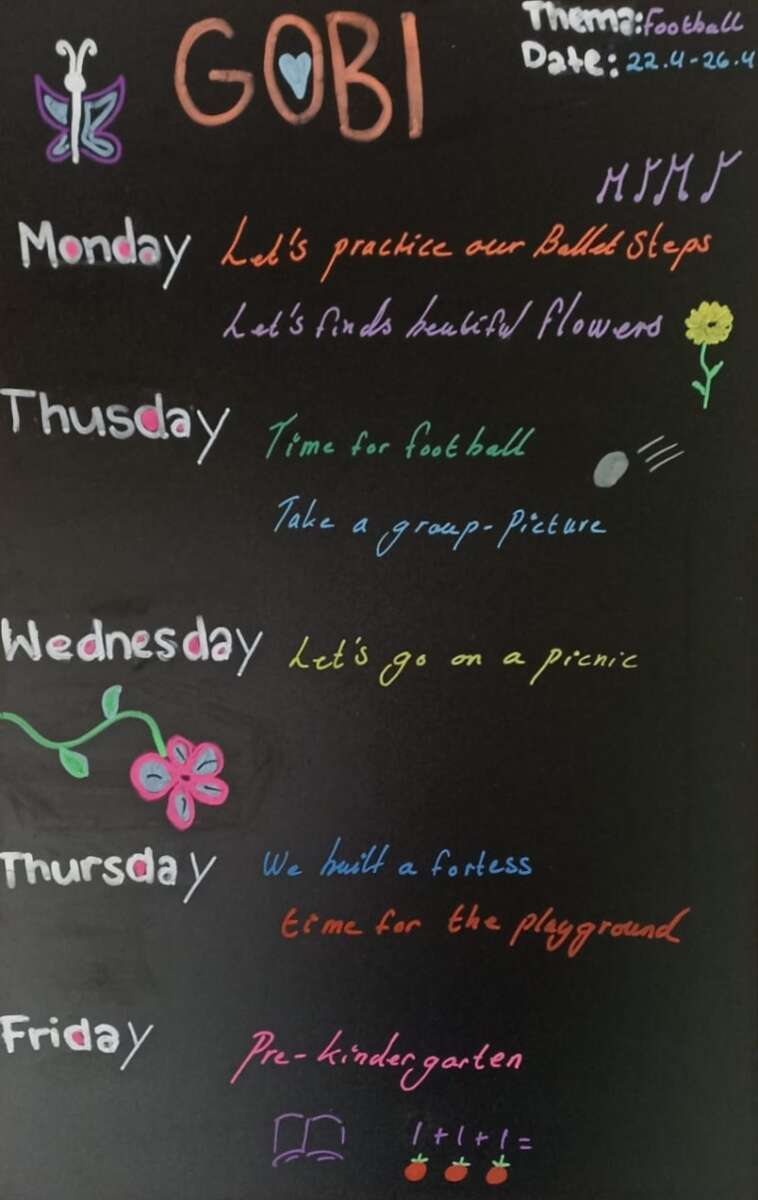 GOBI
Thema: Football
Date: 22.4-26.4
Monday Let's practice our Ballet Steps
Let's finds beutiful flowers
Thusday Time for football
Take a group-Picture
Wednesday Let's go on a picnic
Thursday We built a fortess
time for the playground
Friday Pre-kindergarten
1+1+1=